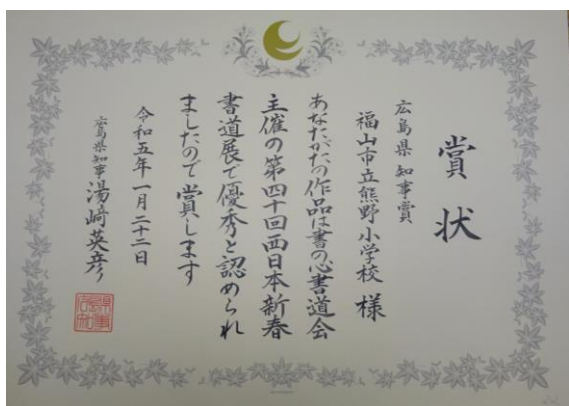 賞状
広島県知事賞
福山市立熊野小学校様
あなたがたの作品は書の心書道会
主催の第四十回西日本新春
書道展で優秀と認められ
ましたので賞します
令和五年一月二十二日
広島県知事湯﨑英彦